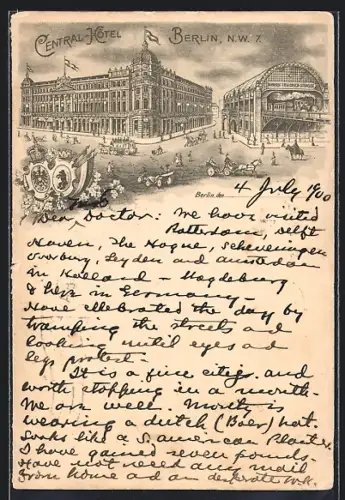 CENTRAL-HOTEL BERLIN, N.W. 7.
Berlin, den 4 July 1900
Dear Doctor: We have visited
Rotterdam, Delft
Haven, The Hague, Scheveningen
Voorburg, Leyden and Amsterdam
in Holland - Magdeburg
& here in Germany -
Have cellebrated the day by
tramping the streets and
looking until eyes and
legs protest -
It is a fine city and
worth stopping in a month.
We are well. Monty is
wearing a dutch (Boer) hat.
Looks like a S. american Planter.
I have gained seven pounds.
Have not need any mail
from home and am desperate W.K.